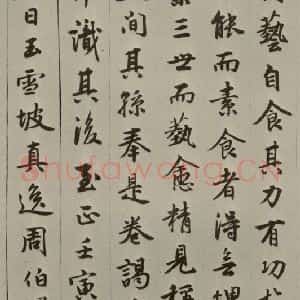 藝自食其力有功
能而素食者得無
三世而藝愈精見稱
間其孫奉是卷謁
識其後至正壬寅
日玉雪坡真逸周伯
Shufawang.CN